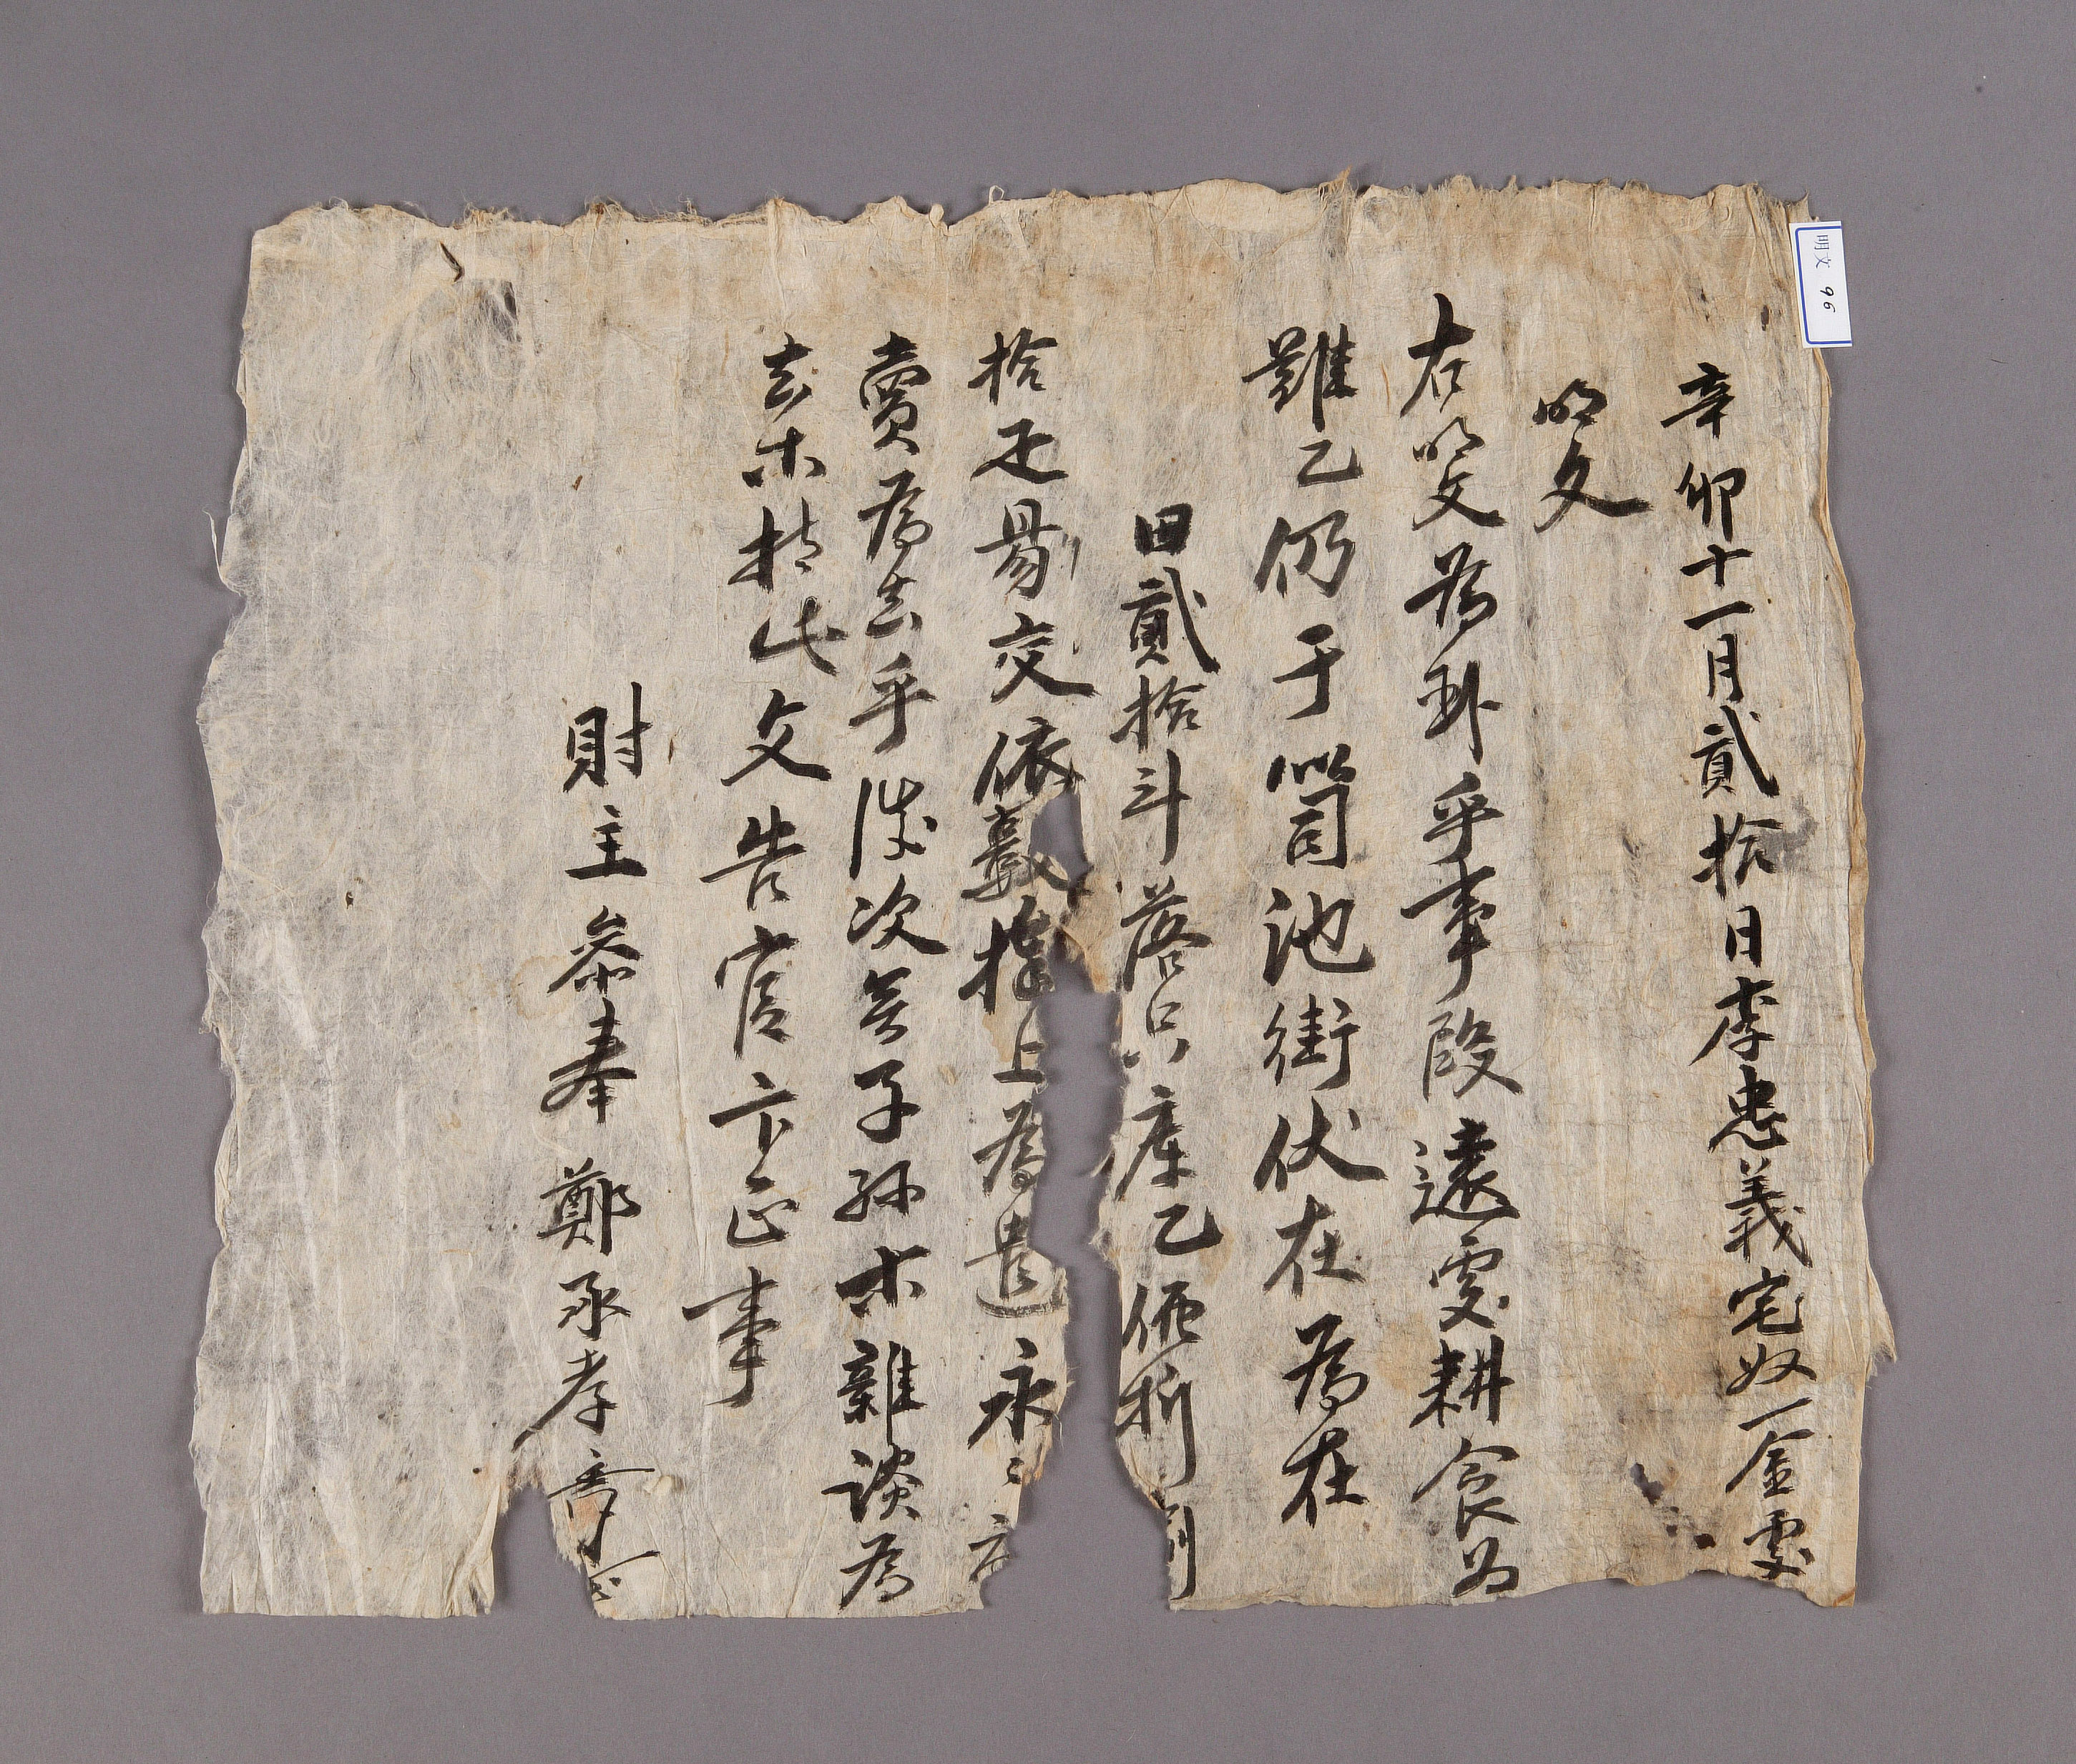 明文 96
辛卯十一月貳拾日李忠義宅奴一金處
明文
右明文爲卧乎事段遠處耕食爲
難乙仍于筒池街伏在爲在
田貳拾斗落只庫乙価折
拾疋易交依數捧上爲遣永〻
賣爲去乎後次矣子孫木雜談爲
去木持此文告官卞正事
財主參奉鄭承孝